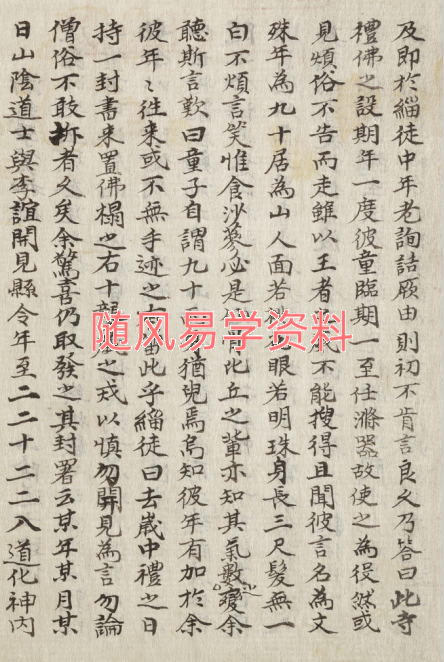 及即於緇徒中年老詢詰厥由則初不肯言良久乃答曰此寺
禮佛之設期年一度彼童臨期一至仕滌器故使之為役然或
見煩俗不告而走雖以王者不能搜得且聞彼言名為文
殊年為九十居為山人面若眼若明珠身長三尺髮無一
白不煩言笑惟食沙蔘必是比丘之輩亦知其氣數變余
聽斯言歎曰童子自謂九十猶兒焉烏知彼年有加於余
彼年〻往来或不無手迹之由此乎緇徒曰去歳中禮之日
持一封書来置佛榻之右十之戎以慎勿開見為言勿論
僧俗不敢拆者久矣余驚喜仍取發之其封署云某年某月某
日山陰道士與李誼開見縣令年至二二十二二入道化神內
随风易学资料